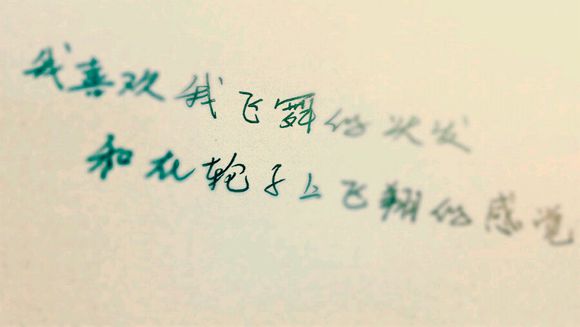 我喜欢我飞舞的头发
和在轮子上飞翔的感觉